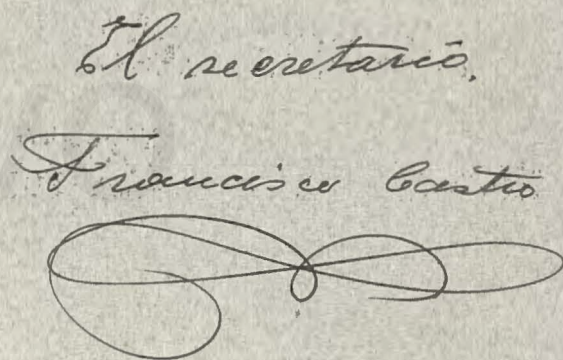 El secretario,
Francisco Castro